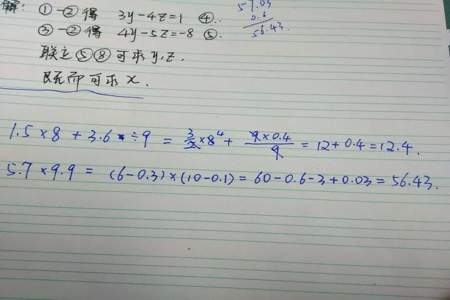 解: ①-②得 3y-4z=1 ④.
③-②得 4y-5z=-8 ⑤.
联立⑤⑧可求y,z.
既而可求x.
57.03
0.6
56.43.
1.5×8+3.6÷9 = 3/2×8⁴ + 9×0.4/9 = 12+0.4=12.4.
5.7×9.9 = (6-0.3)×(10-0.1)=60-0.6-3+0.03=56.43.